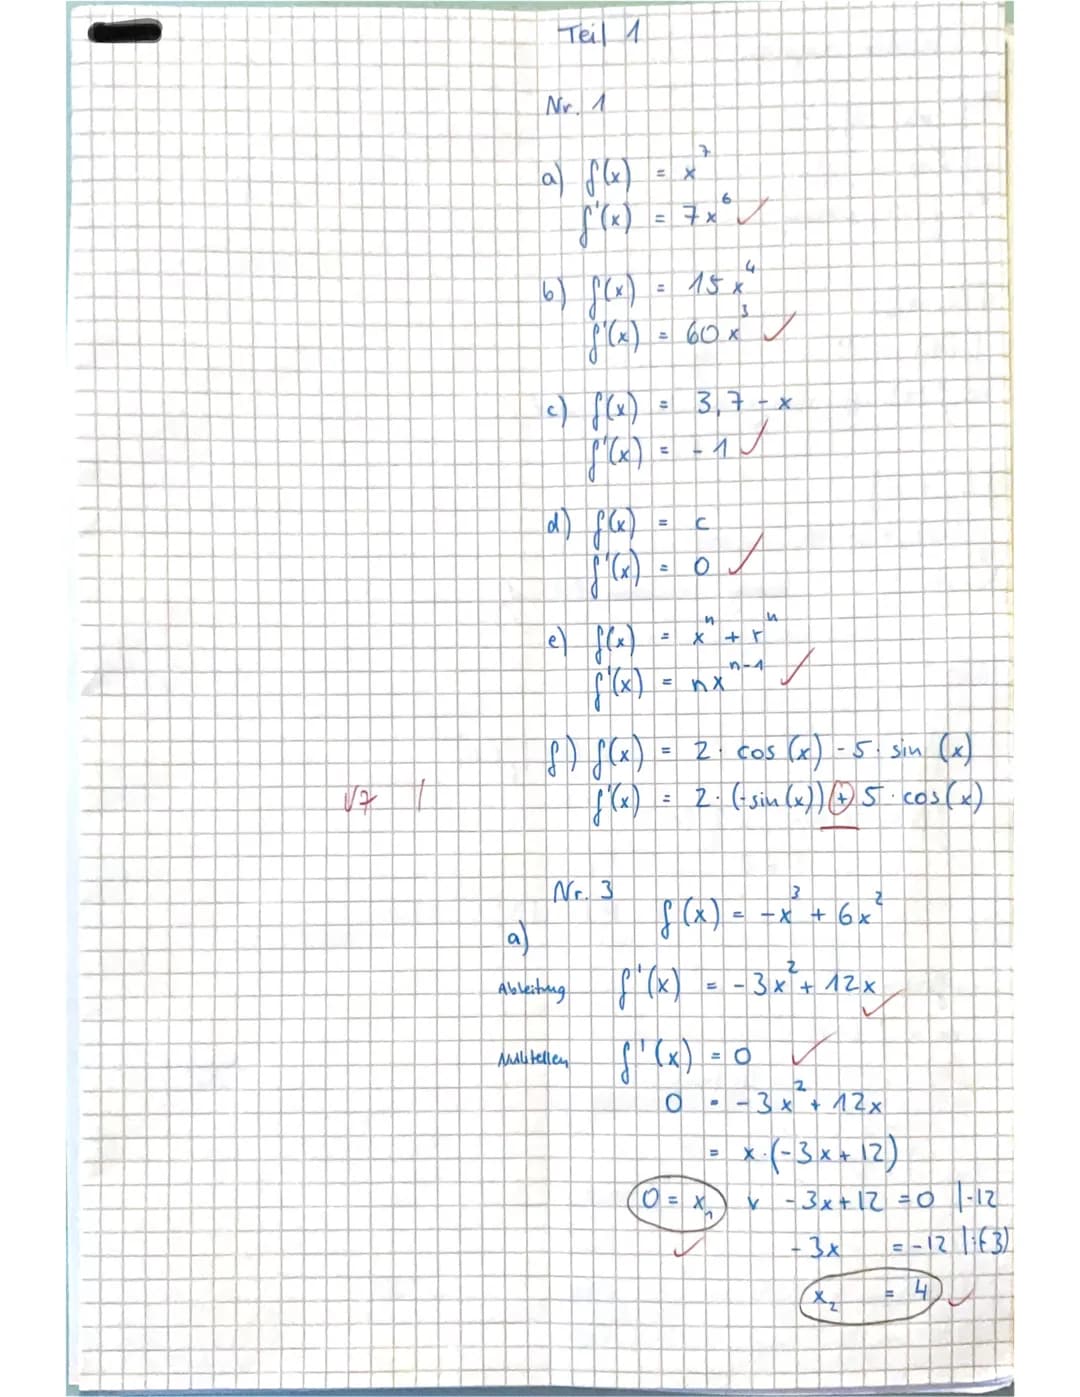 Teil 1
Nr. 1
a) f(x) = x^7
f'(x) = 7x^6 ✓
b) f(x) = 15x^4
f'(x) = 60x^3 ✓
c) f(x) = 3,7 - x
f'(x) = -1 ✓
d) f(x) = c
f'(x) = 0 ✓
e) f(x) = x^n + r^n
f'(x) = nx^(n-1) ✓
f) f(x) = 2 · cos (x) - 5 · sin (x)
f'(x) = 2 · (-sin(x)) + 5 · cos(x)
Nr. 3
f(x) = -x^3 + 6x^2
a)
Ableitung f'(x) = -3x^2 + 12x ✓
f'(x) = 0 ✓
0 = -3x^2 + 12x
= x · (-3x + 12)
0 = x_1 v -3x + 12 = 0 |-12
✓ -3x = -12 |:(-3)
x_2 = 4 ✓